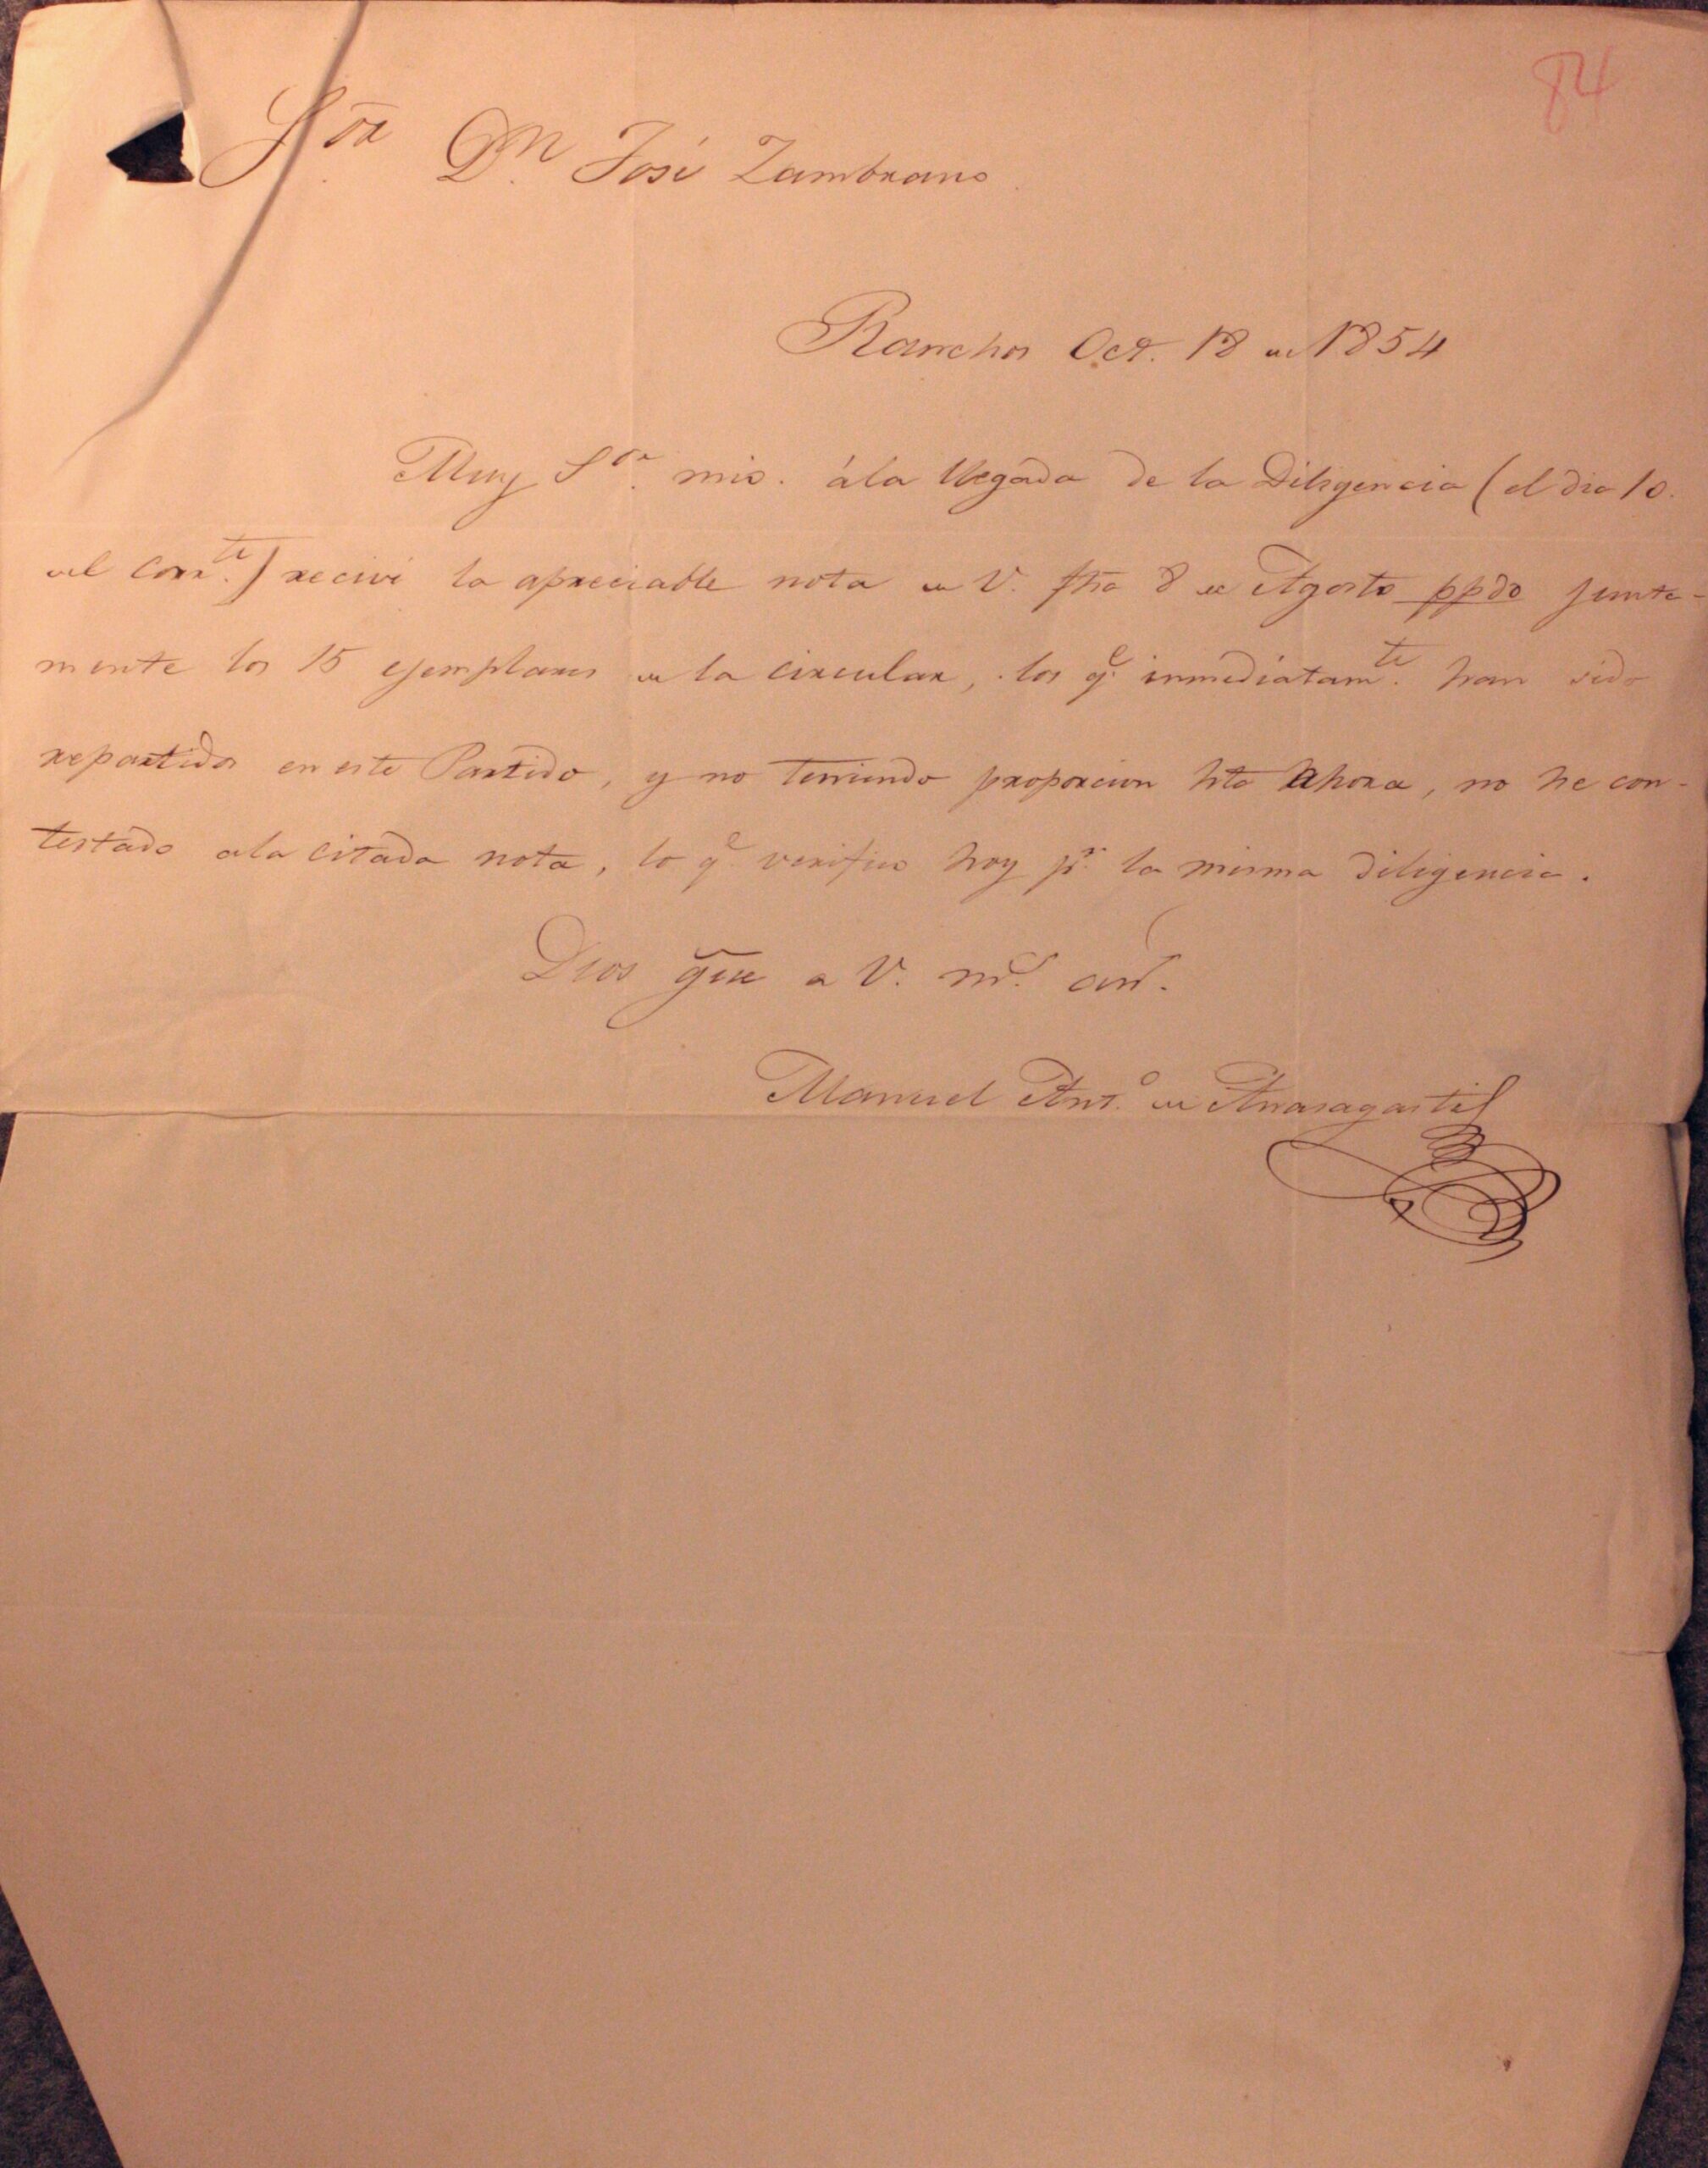 84
Sor Dn José Zambrano
Ranchos Oct. 18 de 1854
Muy Sor. mio. á la llegada de la Diligencia (el dia 10.
del corrte.) recivi la apreciable nota de V. fha 8 de Agosto ppdo junta-
mente los 15 ejemplares de la circular, los qe inmediatamte. han sido
repartidos en este Partido, y no teniendo proporcion hta ahora, no he con-
testado a la citada nota, lo qe verifico hoy pr. la misma diligencia.
Dios gue a V. ms. as.
Manuel Anto. de